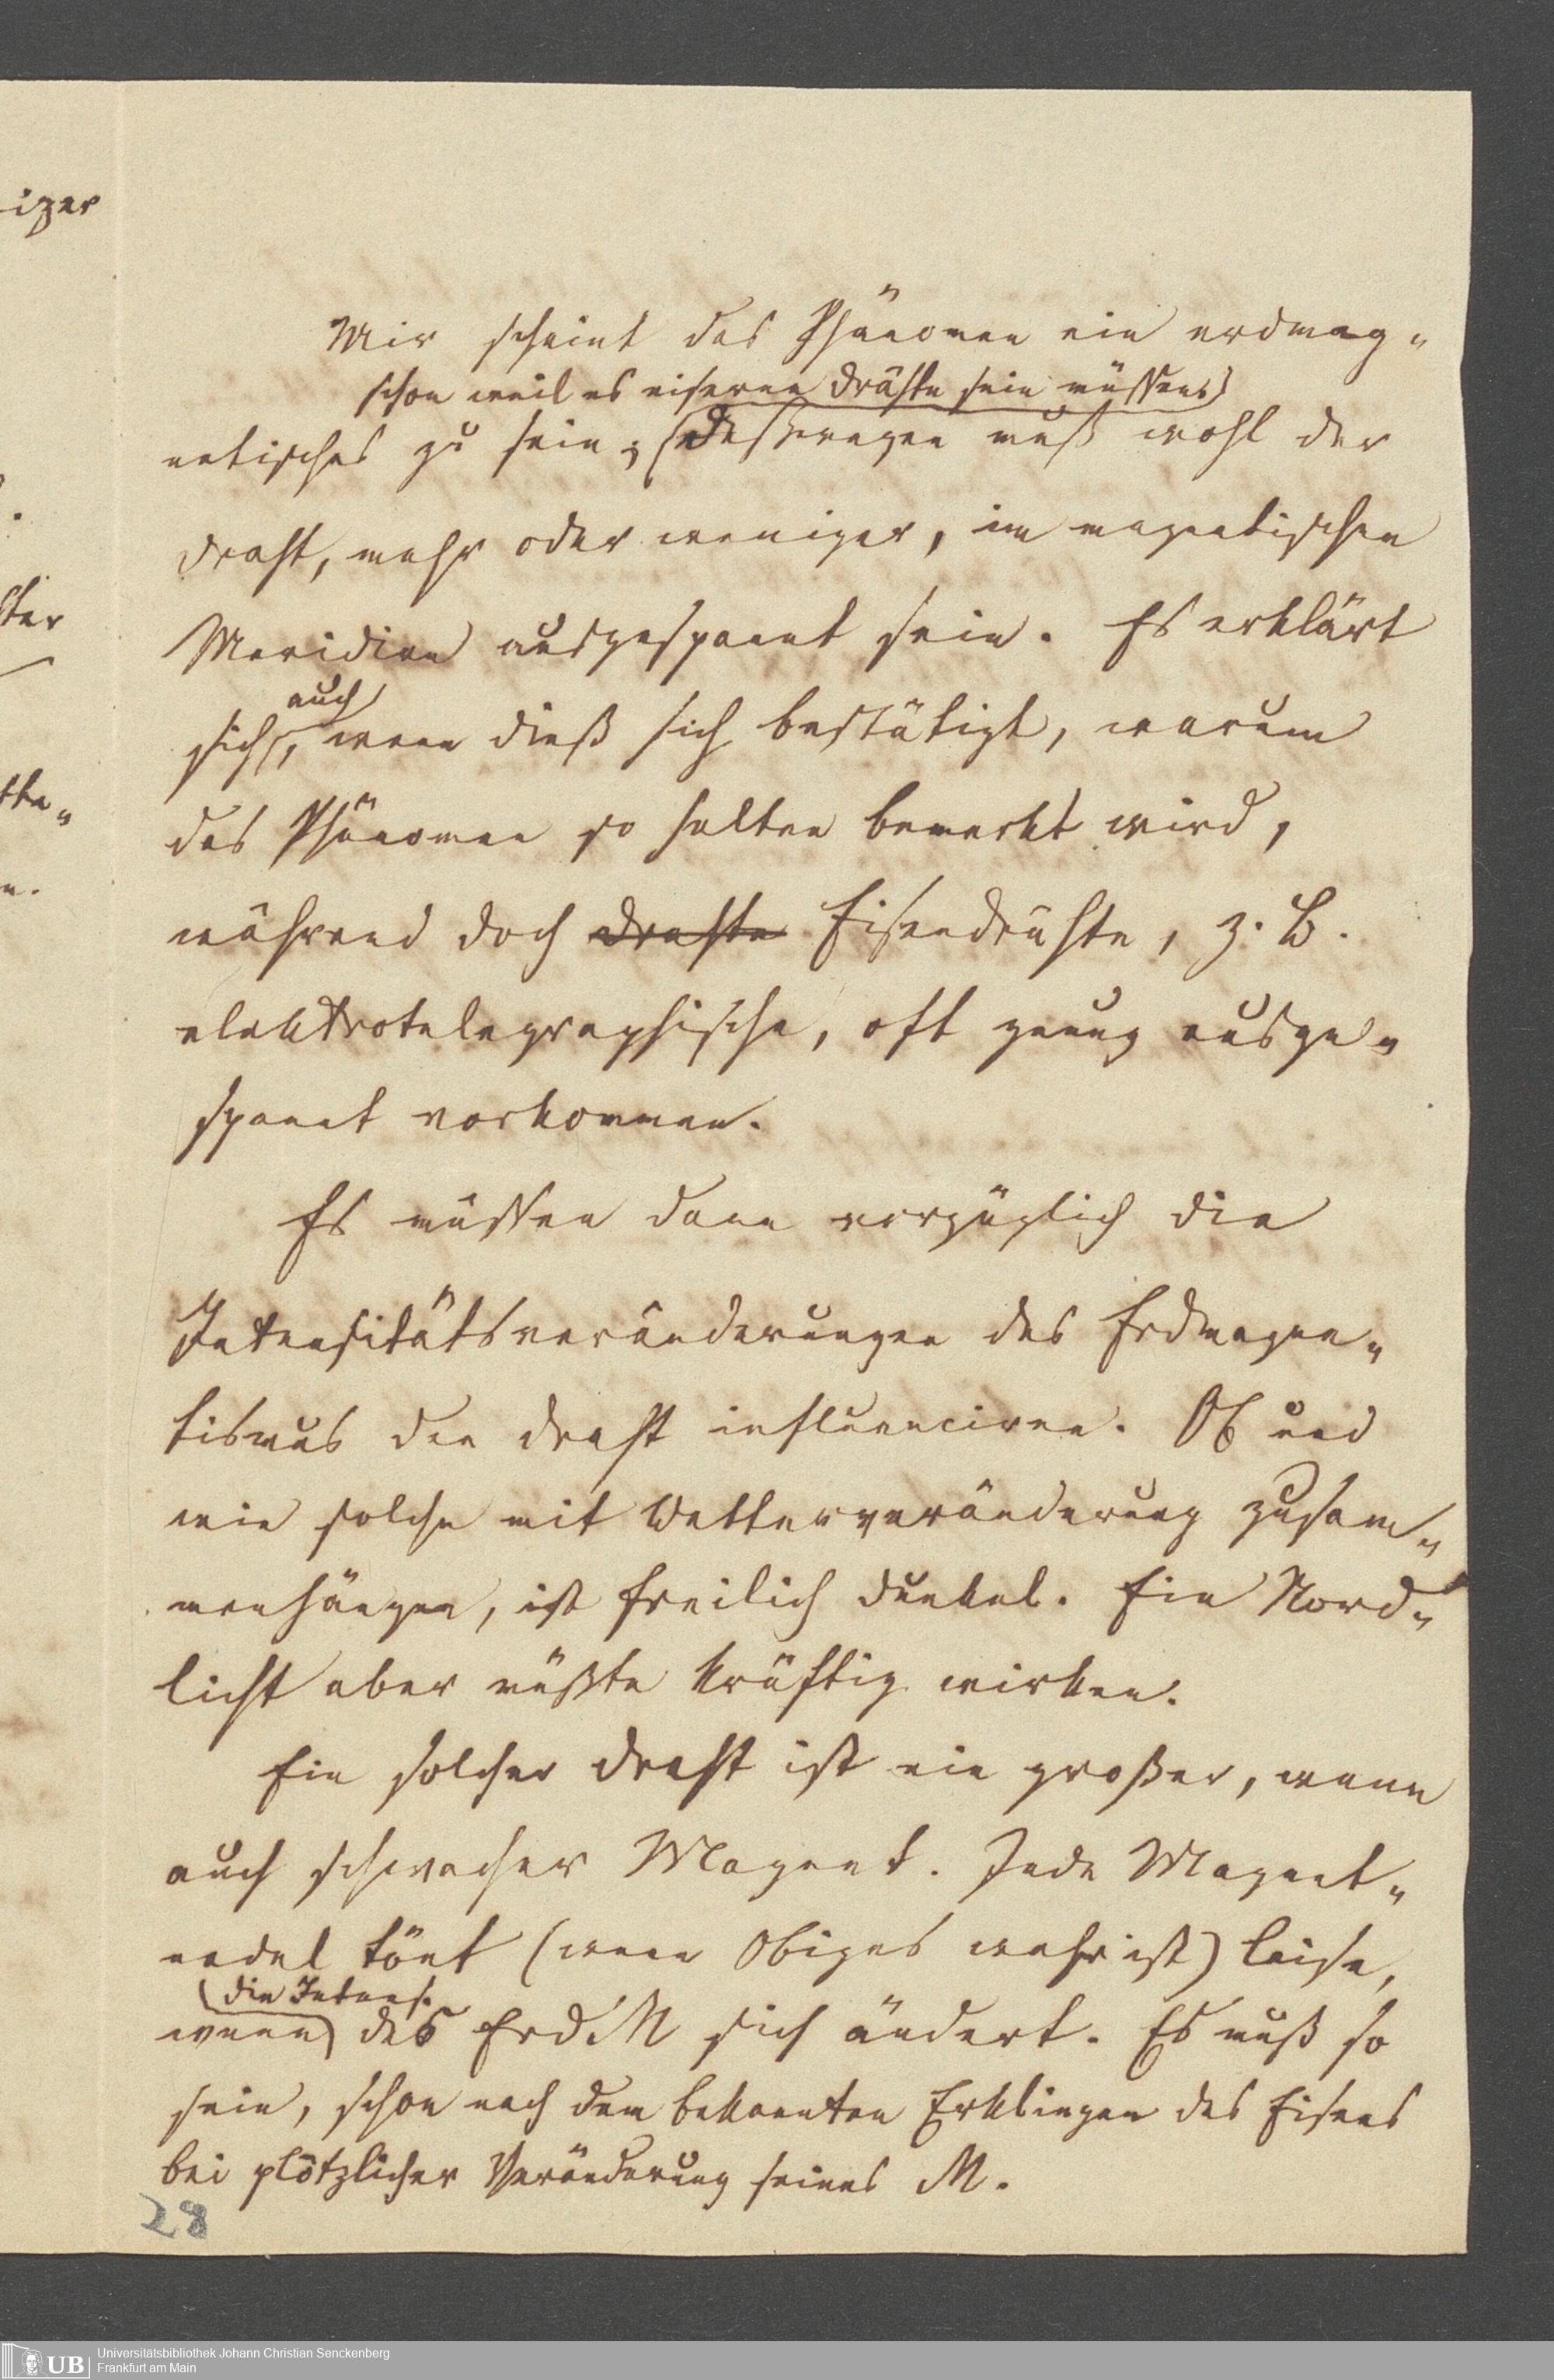 izer
Mir scheint das Phänomen ein erdmag-
schon weil es eiserne Drähte sein müssen
netisches zu sein; deßwegen muß wohl der
Draht, mehr oder weniger, im magnetischen
Meridian ausgespannt sein. Es erklärt
auch
sich, wenn dieß sich bestätigt, warum
das Phänomen so selten bemerkt wird,
während doch Drahte Eisendrähte, z. B.
elektrotelegraphische, oft genug ausge-
spannt vorkommen.
Es müssen dann vorzüglich die
Intensitätsveränderungen des Erdmagne-
tismus den Draht influenciren. Ob und
wie solche mit Wetterveränderung zusam-
menhängen, ist freilich dunkel. Ein Nord-
licht aber müßte kräftig wirken.
Ein solcher Draht ist ein großer, wenn
auch schwacher Magnet. Jede Magnet-
nadel tönt (wenn Obiges wahr ist) leise,
die Intens.
wenn des Erd M sich ändert. Es muß so
sein, schon nach dem bekannten Erklingen des Eisens
bei plötzlicher Veränderung seines M.
28
UB
Universitätsbibliothek Johann Christian Senckenberg
Frankfurt am Main